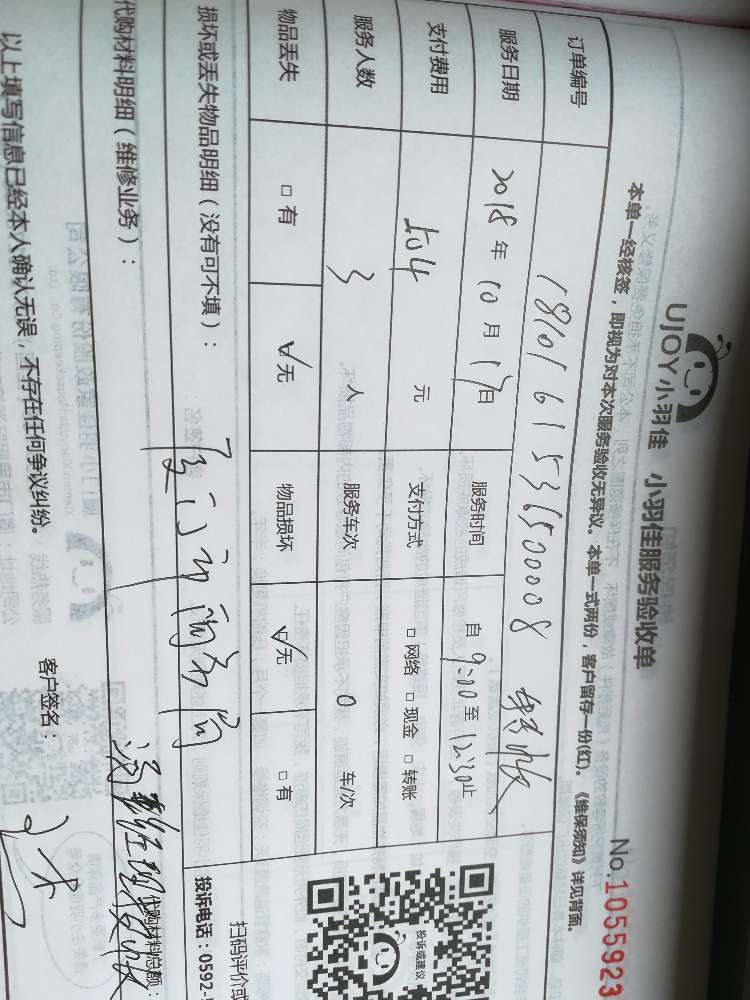 UJOY小羽佳 小羽佳服务验收单
No.1055923
本单一经核签，即视为对本次服务验收无异议。本单一式两份，客户留存一份(红)。《维保须知》详见背面。
订单编号 1810161536500008
服务日期 2018年10月17日 服务时间 自9:00至12:30止
支付费用 元 支付方式 □网络 □现金 □转账
服务人数 3人 服务车次 0 车/次
物品丢失 □有 ☑无 物品损坏 ☑无 □有
损坏或丢失物品明细（没有可不填）：
代购材料明细（维修业务）：
代购材料总额：
以上填写信息已经本人确认无误，不存在任何争议纠纷。
客户签名：
投诉或建议
扫码评价或
投诉电话：0592-